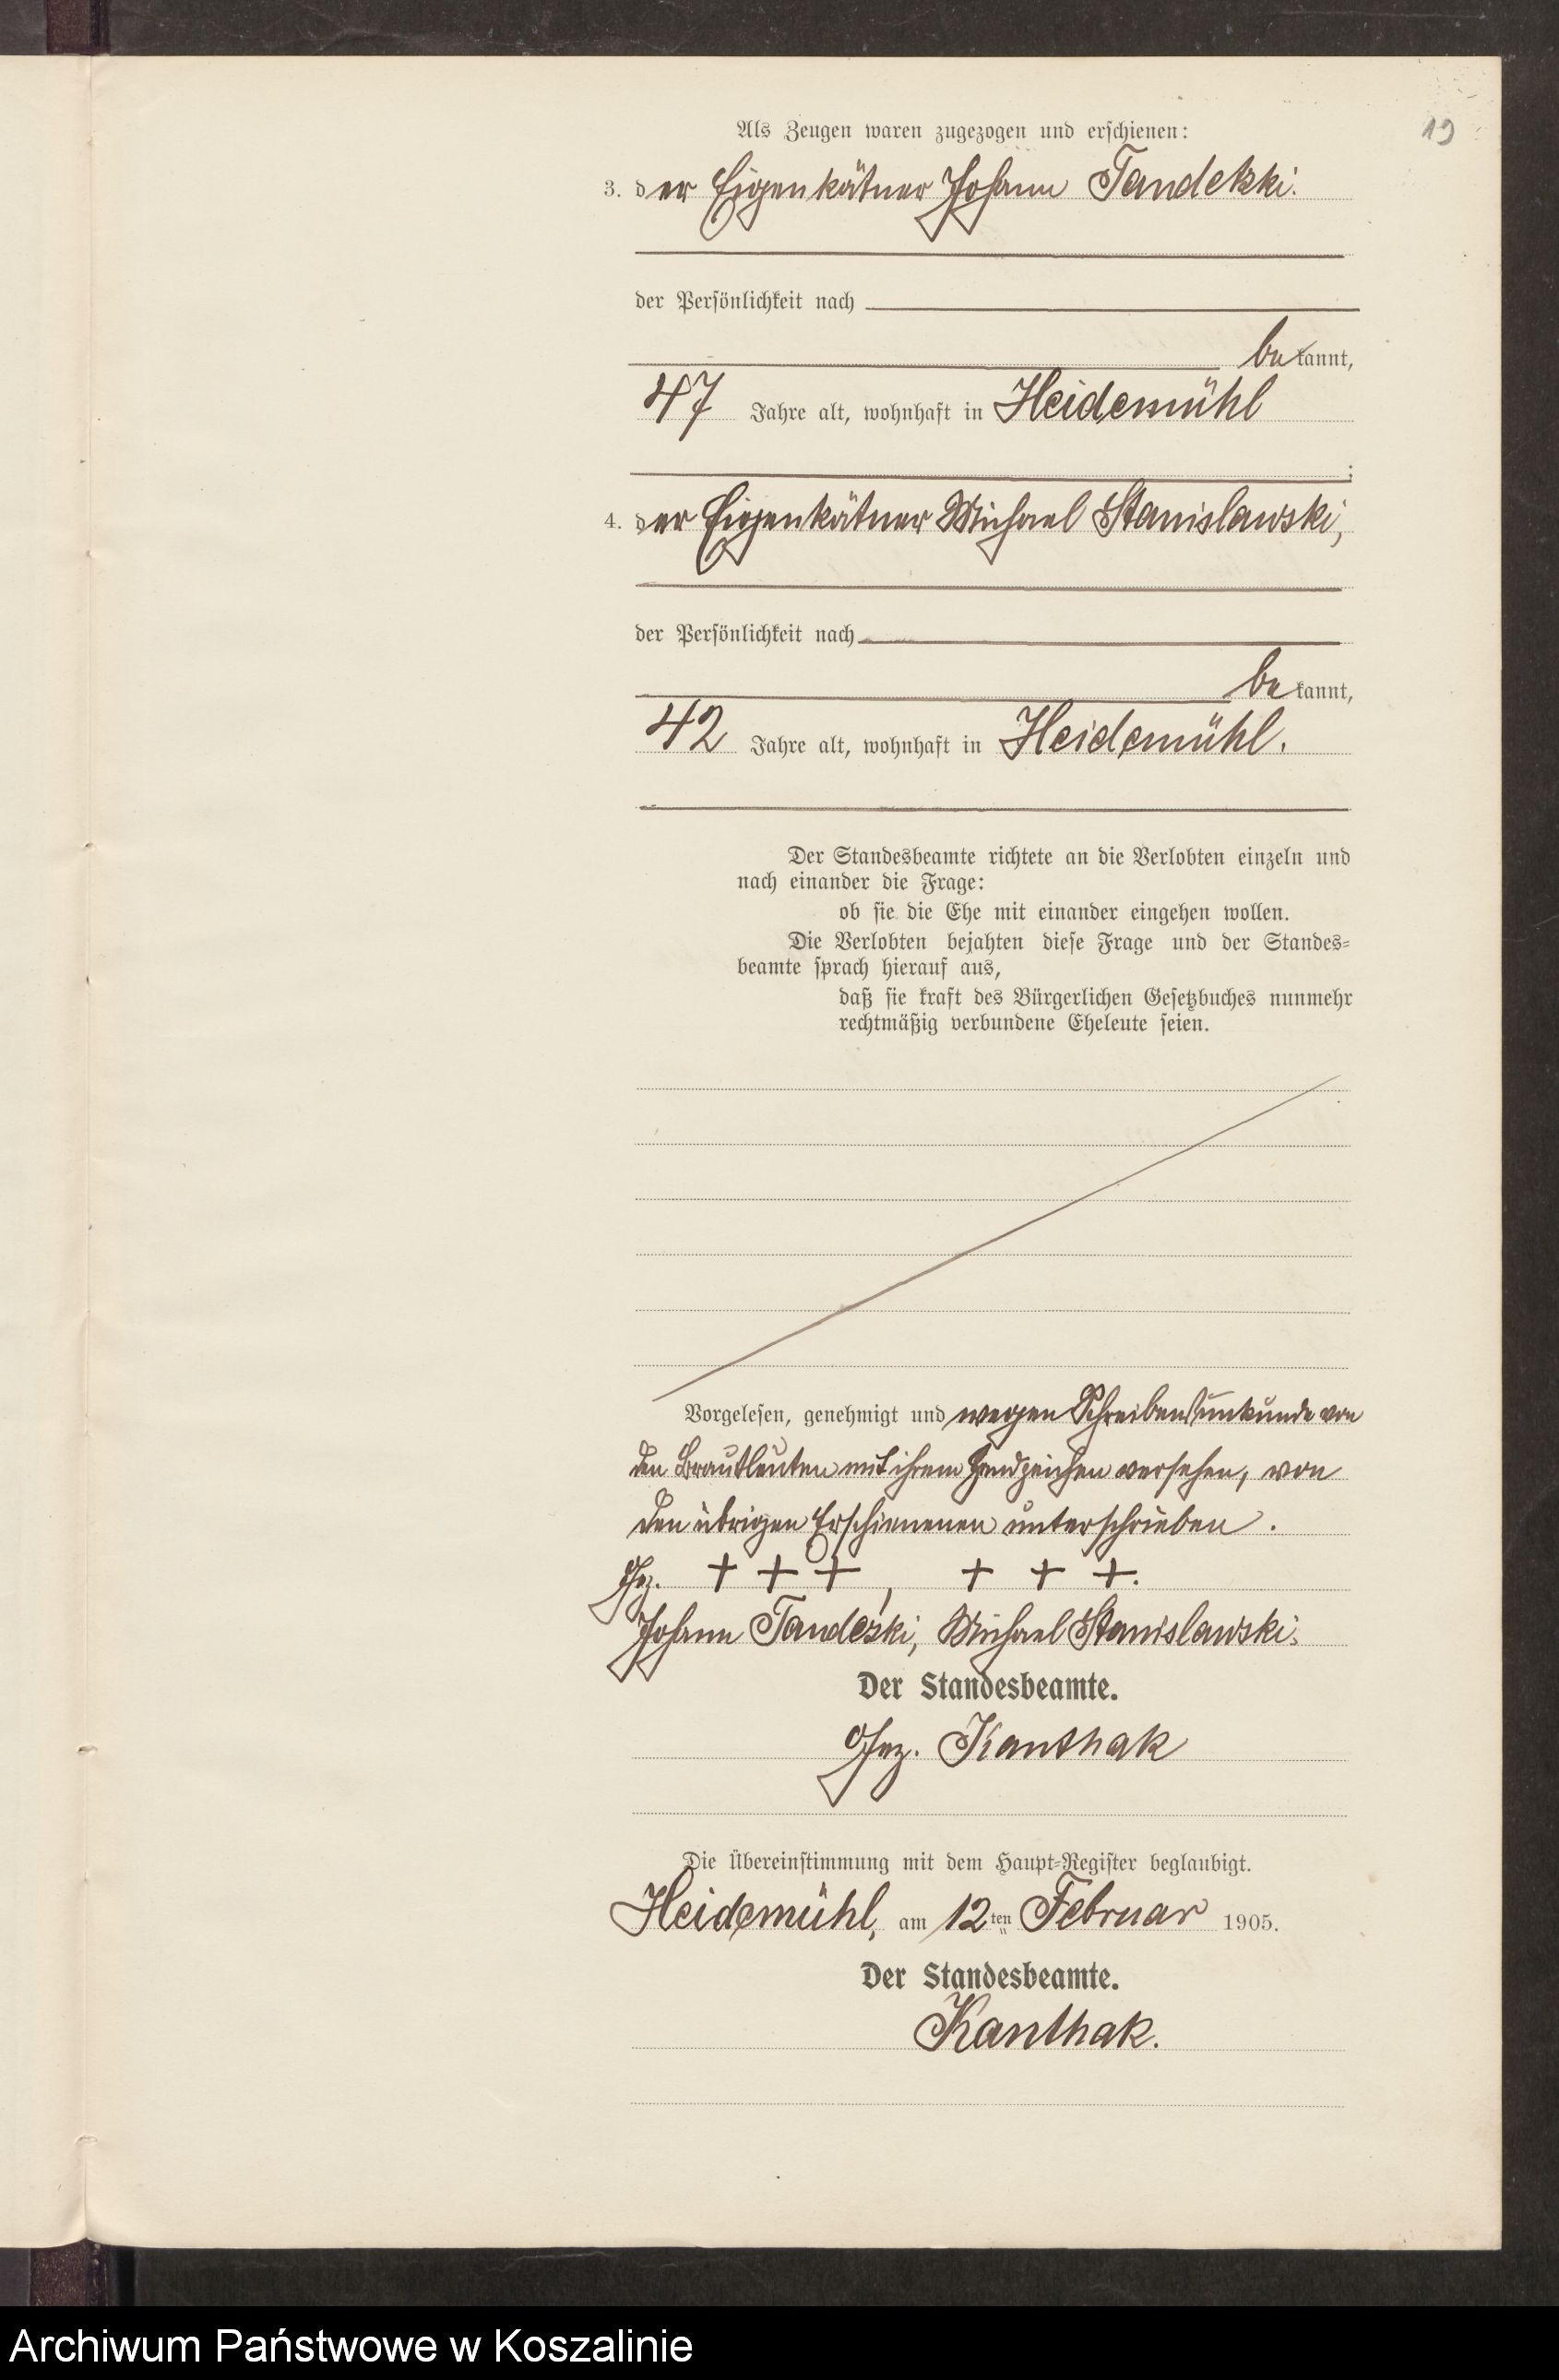 19
Als Zeugen waren zugezogen und erschienen:
3. der Eigenkätner Johann Tandetzki.
der Persönlichkeit nach
bekannt,
47 Jahre alt, wohnhaft in Heidemühl
;
4. der Eigenkätner Michael Stanislawski,
der Persönlichkeit nach
bekannt,
42 Jahre alt, wohnhaft in Heidemühl.
Der Standesbeamte richtete an die Verlobten einzeln und
nach einander die Frage:
ob sie die Ehe mit einander eingehen wollen.
Die Verlobten bejahten diese Frage und der Standes-
beamte sprach hierauf aus,
daß sie kraft des Bürgerlichen Gesetzbuches nunmehr
rechtmäßig verbundene Eheleute seien.
Vorgelesen, genehmigt und wegen Schreibensunkunde von
den Brautleuten mit ihrem Handzeichen versehen, von
den übrigen Erschienenen unterschrieben.
Gez. + + +, + + +.
Johann Tandeski, Michael Stanislawski.
Der Standesbeamte.
Gez. Kanthak
Die Übereinstimmung mit dem Haupt-Register beglaubigt.
Heidemühl, am 12ten Februar 1905.
Der Standesbeamte.
Kanthak.
Archiwum Państwowe w Koszalinie